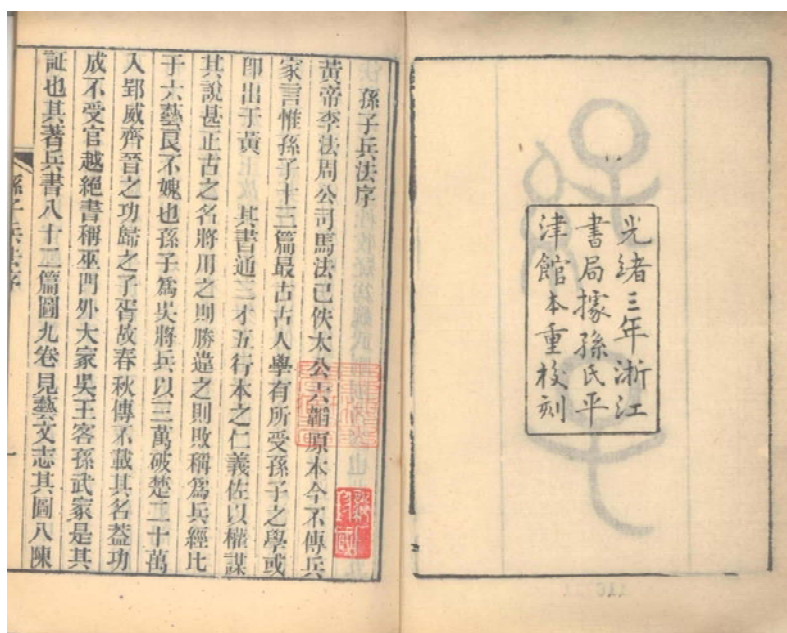 光緒三年浙江
書局據孫氏平
津館本重校刻
孫子兵法序
黃帝李法周公司馬法已佚太公六韜原本今不傳兵
家言惟孫子十三篇最古古人學有所受孫子之學或
卽出于黃 其書通三才五行本之仁義佐以權謀
其說甚正古之名將用之則勝違之則敗稱爲兵經比
于六藝良不媿也孫子爲吳將兵以三萬破楚二十萬
入郢威齊晉之功歸之子胥故春秋傳不載其名葢功
成不受官越絕書稱巫門外大冢吳王客孫武冢是其
証也其著兵書八十二篇圖九卷見藝文志其圖八陳
孫子兵法序